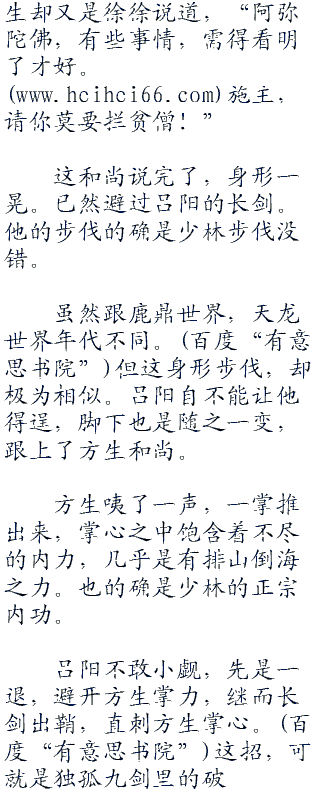 生却又是徐徐说道，“阿弥
陀佛，有些事情，需得看明
了才好。
(www.hcihci66.com)施主，
请你莫要拦贫僧！”
这和尚说完了，身形一
晃。已然避过吕阳的长剑。
他的步伐的确是少林步伐没
错。
虽然跟鹿鼎世界，天龙
世界年代不同。(百度“有意
思书院”)但这身形步伐，却
极为相似。吕阳自不能让他
得逞，脚下也是随之一变，
跟上了方生和尚。
方生咦了一声，一掌推
出来，掌心之中饱含着不尽
的内力，几乎是有排山倒海
之力。也的确是少林的正宗
内功。
吕阳不敢小觑，先是一
退，避开方生掌力，继而长
剑出鞘，直刺方生掌心。(百
度“有意思书院”)这招，可
就是独孤九剑里的破